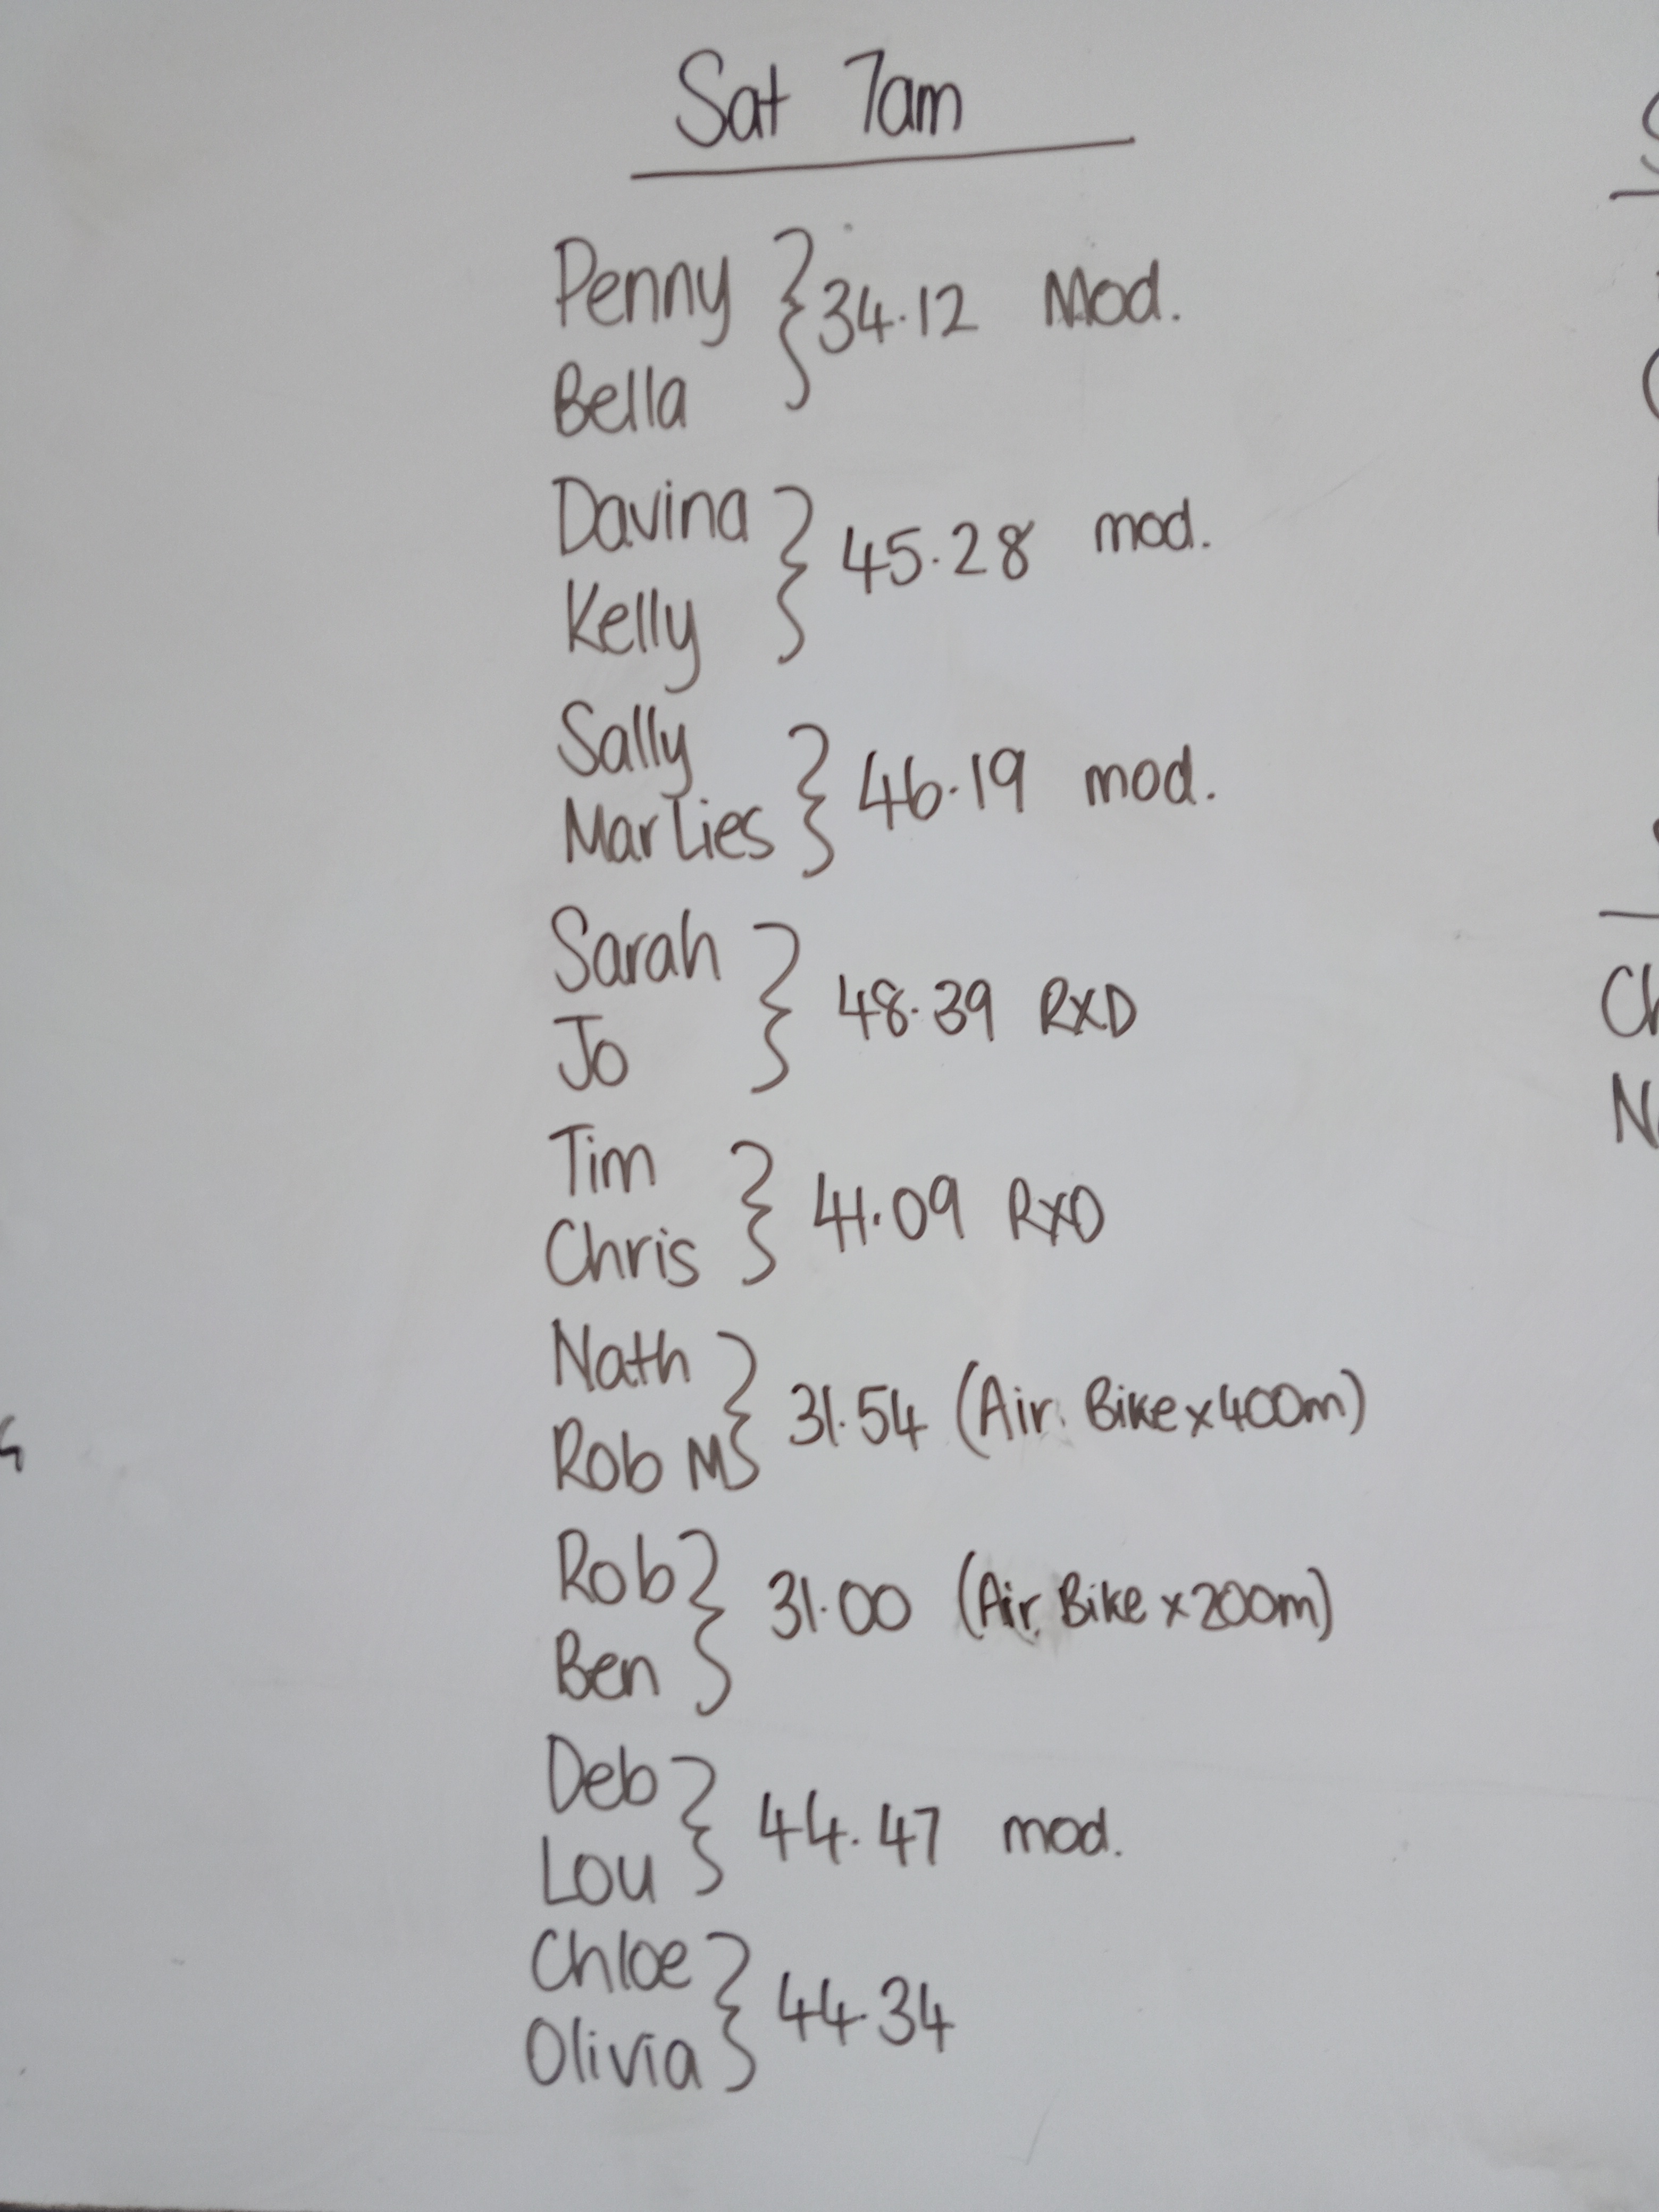 Sat 7am
Penny
34.12 Mod.
Bella
Davina
45.28 mod.
Kelly
Sally
46.19 mod.
Marlies
Sarah
48.39 RXD
Jo
Tim
41.09 RXD
Chris
Nath
31.54 (Air Bike x 400m)
Rob M
Rob
31.00 (Air Bike x 200m)
Ben
Deb
44.47 mod.
Lou
Chloe
44.34
Olivia